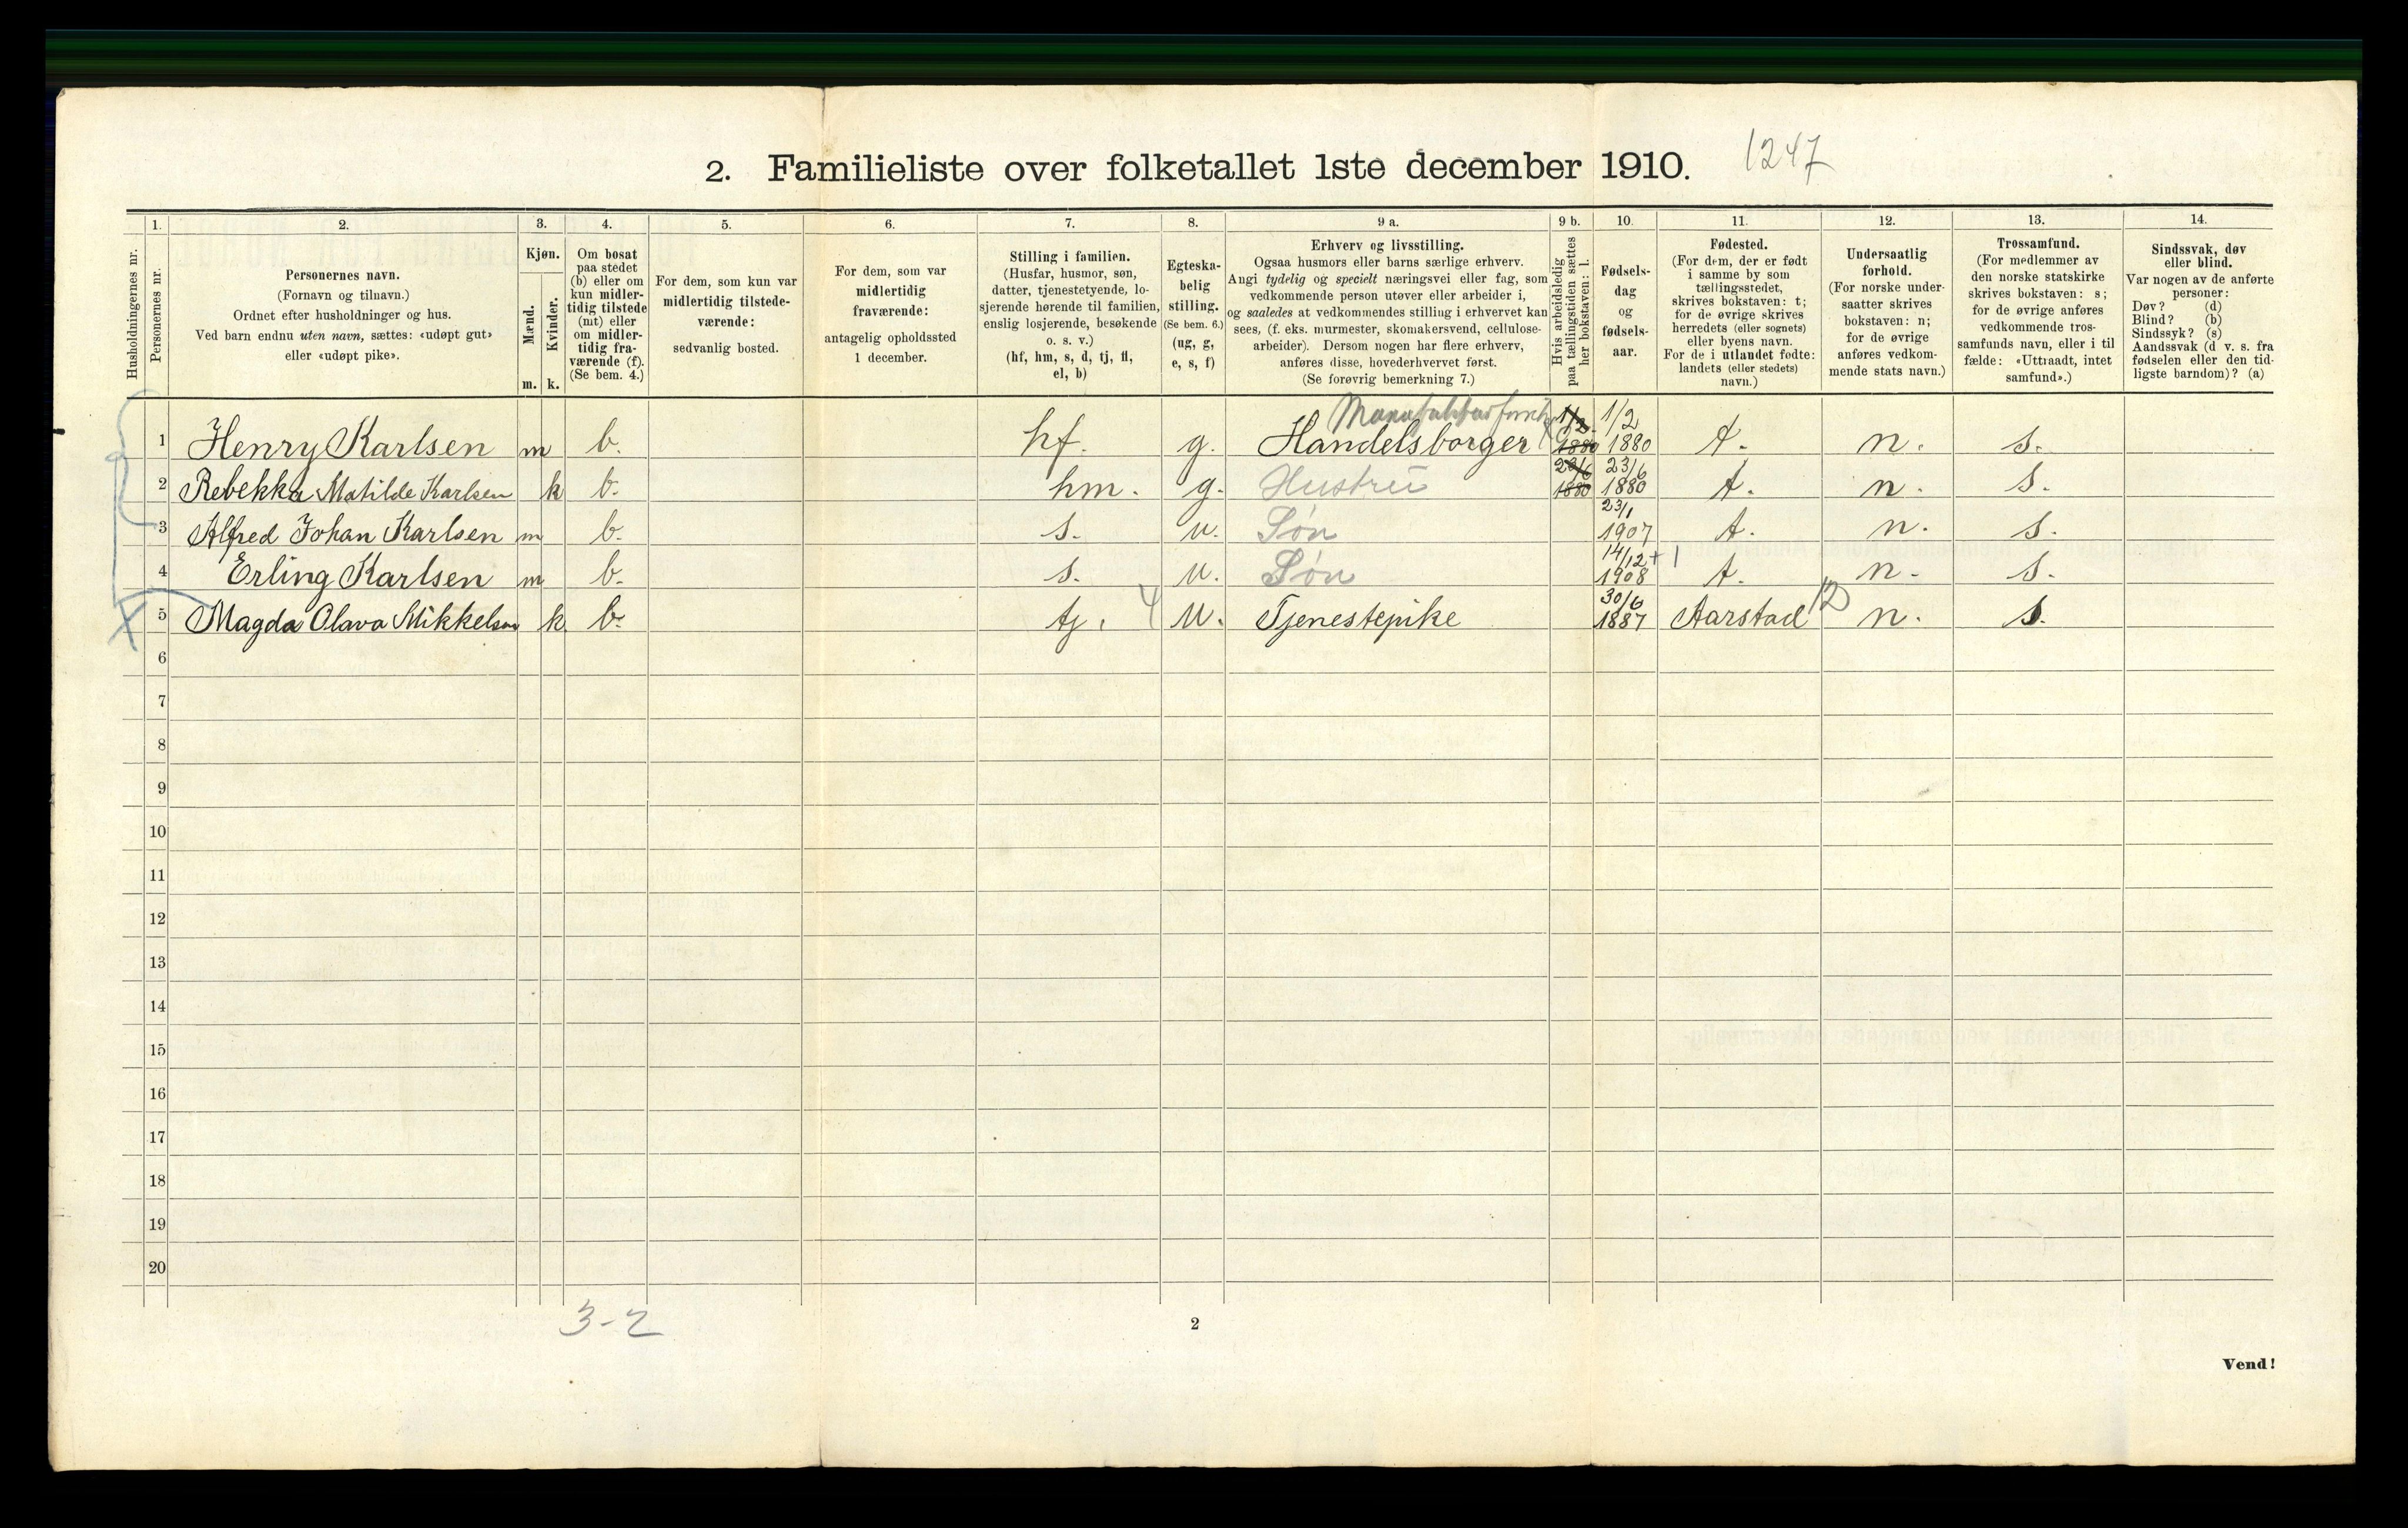 2. Familieliste over folketallet 1ste december 1910. 1247
1. 2. 3. 4. 5. 6. 7. 8. 9 a. 9 b. 10. 11. 12. 13. 14.
Husholdningernes nr.
Personernes nr.
Personernes navn.
(Fornavn og tilnavn.)
Ordnet efter husholdninger og hus.
Ved barn endnu uten navn, sættes: «udøpt gut»
eller «udøpt pike».
Kjøn.
Mænd.
Kvinder.
m. k.
Om bosat
paa stedet
(b) eller om
kun midler-
tidig tilstede
(mt) eller
om midler-
tidig fra-
værende (f).
(Se bem. 4.)
For dem, som kun var
midlertidig tilstede-
værende:
sedvanlig bosted.
For dem, som var
midlertidig
fraværende:
antagelig opholdssted
1 december.
Stilling i familien.
(Husfar, husmor, søn,
datter, tjenestetyende, lo-
sjerende hørende til familien,
enslig losjerende, besøkende
o. s. v.)
(hf, hm, s, d, tj, fl,
el, b)
Egteska-
belig
stilling.
(Se bem. 6.)
(ug, g,
e, s, f)
Erhverv og livsstilling.
Ogsaa husmors eller barns særlige erhverv.
Angi tydelig og specielt næringsvei eller fag, som
vedkommende person utøver eller arbeider i,
og saaledes at vedkommendes stilling i erhvervet kan
sees, (f. eks. murmester, skomakersvend, cellulose-
arbeider). Dersom nogen har flere erhverv,
anføres disse, hovederhvervet først.
(Se forøvrig bemerkning 7.)
Hvis arbeidsledig
paa tællingstiden sættes
her bokstaven: l.
Fødsels-
dag
og
fødsels-
aar.
Fødested.
(For dem, der er født
i samme by som
tællingsstedet,
skrives bokstaven: t;
for de øvrige skrives
herredets (eller sognets)
eller byens navn.
For de i utlandet fødte:
landets (eller stedets)
navn.)
Undersaatlig
forhold.
(For norske under-
saatter skrives
bokstaven: n;
for de øvrige
anføres vedkom-
mende stats navn.)
Trossamfund.
(For medlemmer av
den norske statskirke
skrives bokstaven: s;
for de øvrige anføres
vedkommende tros-
samfunds navn, eller i til
fælde: «Uttraadt, intet
samfund».)
Sindssvak, døv
eller blind.
Var nogen av de anførte
personer:
Døv? (d)
Blind? (b)
Sindssyk? (s)
Aandssvak (d v. s. fra
fødselen eller den tid-
ligste barndom)? (a)
1 Henry Karlsen m b. hf. g. Handelsborger 1/2 1880 1/2 1880 t. n. s.
2 Rebekka Matilde Karlsen k b. hm. g. Hustru 23/6 1880 23/6 1880 t. n. s.
3 Alfred Johan Karlsen m b. s. u. Søn 23/1 1907 t. n. s.
4 Erling Karlsen m b. s. u. Søn 14/12 1908 + 1 t. n. s.
5 Magda Olava Mikkelsen k b. tj. 4 u. Tjenestepike 30/6 1887 Aarstad 12 n. s.
6
7
8
9
10
11
12
13
14
15
16
17
18
19
20
3-2
2
Vend!